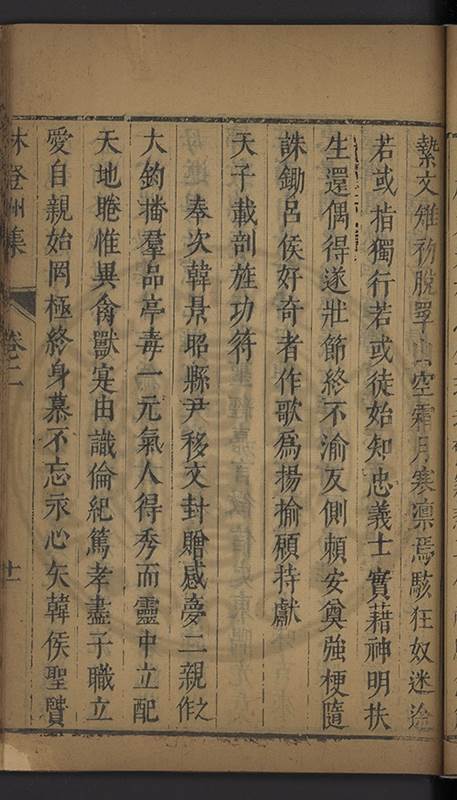 縶文雉初脫罩山空霜月寒凛焉駭狂奴迷途
若或指獨行若或徒始知忠義士實藉神明扶
生還偶得遂壯節終不渝反側頼安奠強梗隨
誅鋤呂侯好竒者作歌爲揚揄願持獻
天子載剖旌功符
奉次韓景昭縣尹移文封贈感夢二親之作
大鈞播羣品亭毒一元氣人得秀而靈中立配
天地睠惟異禽獸寔由識倫紀篤孝盡子職立
愛自親始罔極終身慕不忘永心矢韓侯聖贒
林登州集 卷二 十一